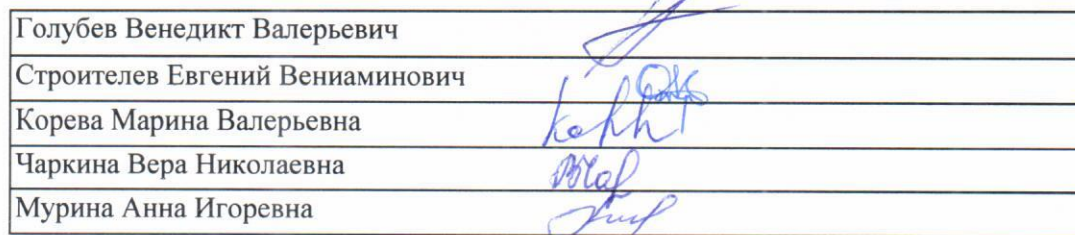 Голубев Венедикт Валерьевич
Строителев Евгений Вениаминович
Корева Марина Валерьевна
Чаркина Вера Николаевна
Мурина Анна Игоревна